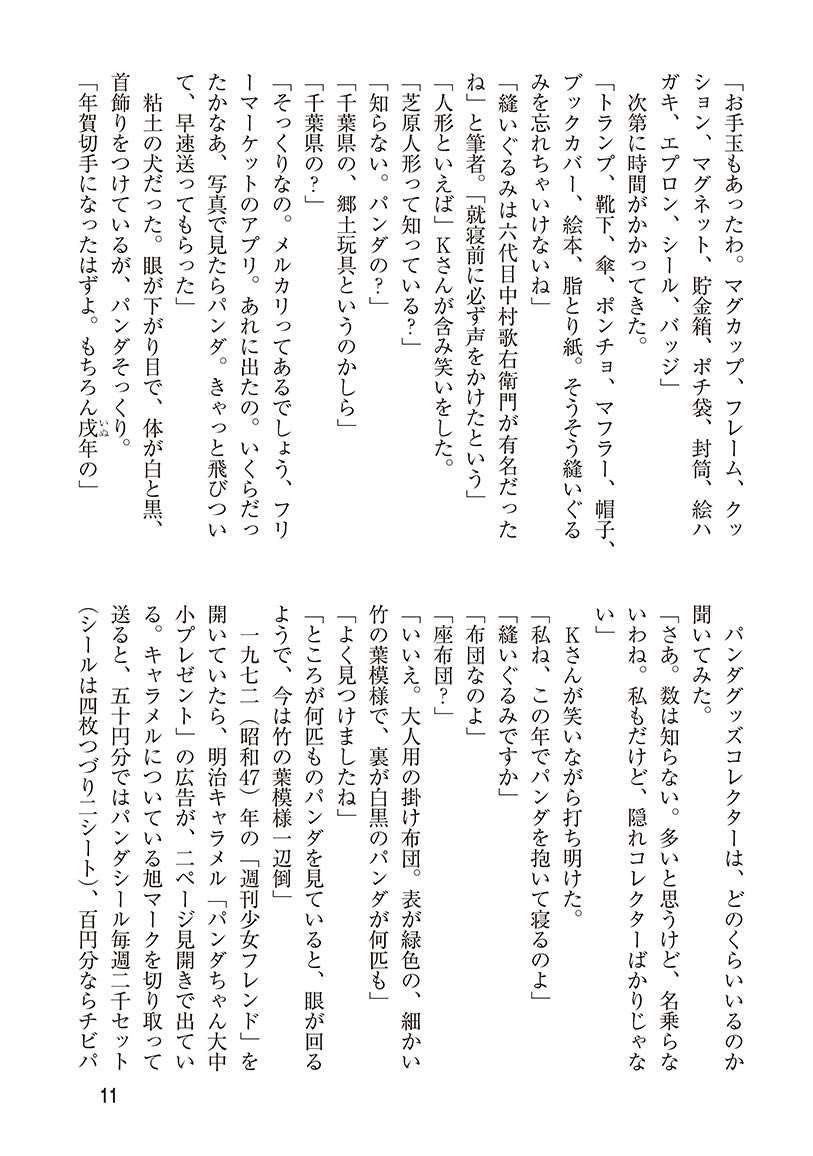 「お手玉もあったわ。マグカップ、フレーム、クッ
ション、マグネット、貯金箱、ポチ袋、封筒、絵ハ
ガキ、エプロン、シール、バッジ」
　次第に時間がかかってきた。
「トランプ、靴下、傘、ポンチョ、マフラー、帽子、
ブックカバー、絵本、脂とり紙。そうそう縫いぐる
みを忘れちゃいけないね」
「縫いぐるみは六代目中村歌右衛門が有名だった
ね」と筆者。「就寝前に必ず声をかけたという」
「人形といえば」Kさんが含み笑いをした。
「芝原人形って知っている？」
「知らない。パンダの？」
「千葉県の、郷土玩具というのかしら」
「千葉県の？」
「そっくりなの。メルカリってあるでしょう、フリ
ーマーケットのアプリ。あれに出たの。いくらだっ
たかなあ、写真で見たらパンダ。きゃっと飛びつい
て、早速送ってもらった」
　粘土の犬だった。眼が下がり目で、体が白と黒、
首飾りをつけているが、パンダそっくり。
「年賀切手になったはずよ。もちろん戌年の」
いぬ
　パンダグッズコレクターは、どのくらいいるのか
聞いてみた。
「さあ。数は知らない。多いと思うけど、名乗らな
いわね。私もだけど、隠れコレクターばかりじゃな
い」
　Kさんが笑いながら打ち明けた。
「私ね、この年でパンダを抱いて寝るのよ」
「縫いぐるみですか」
「布団なのよ」
「座布団？」
「いいえ。大人用の掛け布団。表が緑色の、細かい
竹の葉模様で、裏が白黒のパンダが何匹も」
「よく見つけましたね」
「ところが何匹ものパンダを見ていると、眼が回る
ようで、今は竹の葉模様一辺倒」
　一九七二（昭和47）年の「週刊少女フレンド」を
開いていたら、明治キャラメル「パンダちゃん大中
小プレゼント」の広告が、二ページ見開きで出てい
る。キャラメルについている旭マークを切り取って
送ると、五十円分ではパンダシール毎週二千セット
（シールは四枚つづり二シート）、百円分ならチビパ
11